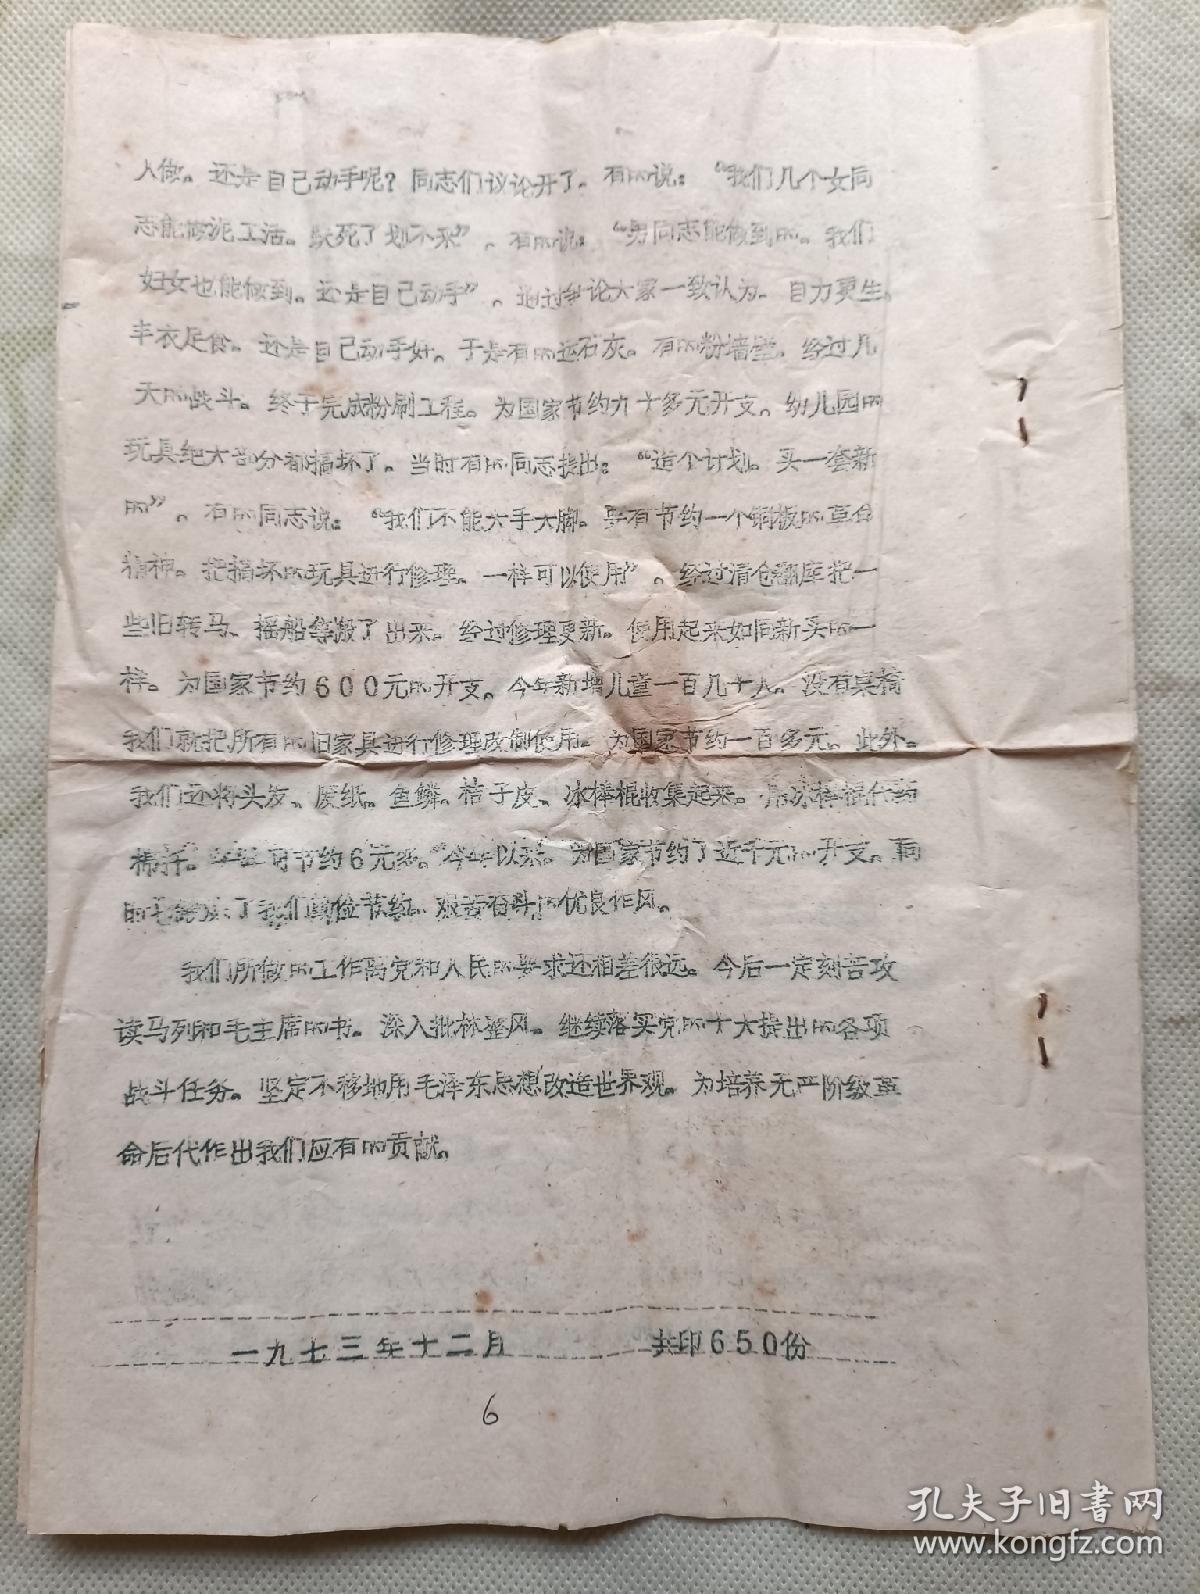 人做。还是自己动手呢？同志们议论开了。有的说：“我们几个女同
志能做泥工活。 死了划不来”、有的说：“男同志能做到的。我们
妇女也能做到。还是自己动手”、通过争论大家一致认为、自力更生、
丰衣足食。还是自己动手好。于是有的运石灰。有的粉墙壁、经过几
天的战斗。终于完成粉刷工程。为国家节约九十多元开支。幼儿园的
玩具绝大部分都搞坏了。当时有的同志提出：“造个计划。买一套新
的”、有的同志说：“我们不能大手大脚。要有节约一个铜板的革命
精神。把搞坏的玩具进行修理、一样可以使用”。经过清仓翻库把一
些旧转马、摇船等搬了出来。经过修理更新。使用起来如同新买的一
样。为国家节约600元的开支。今年新增儿童一百几十人。没有桌椅
我们就把所有的旧家具进行修理改制使用。为国家节约一百多元。此外。
我们还将头发、废纸、鱼鳞、桔子皮、冰棒棍收集起来。用冰棒棍代药
棉扦。 可节约6元多。今年以来。为国家节约了近千元的开支。同
时 了我们勤俭节约、艰苦奋斗的优良作风。
我们所做的工作离党和人民的要求还相差很远。今后一定刻苦攻
读马列和毛主席的书。深入批林整风。继续落实党的十大提出的各项
战斗任务。坚定不移地用毛泽东思想改造世界观。为培养无产阶级革
命后代作出我们应有的贡献。
一九七三年十二月 共印650份
6
孔夫子旧书网
www.kongfz.com